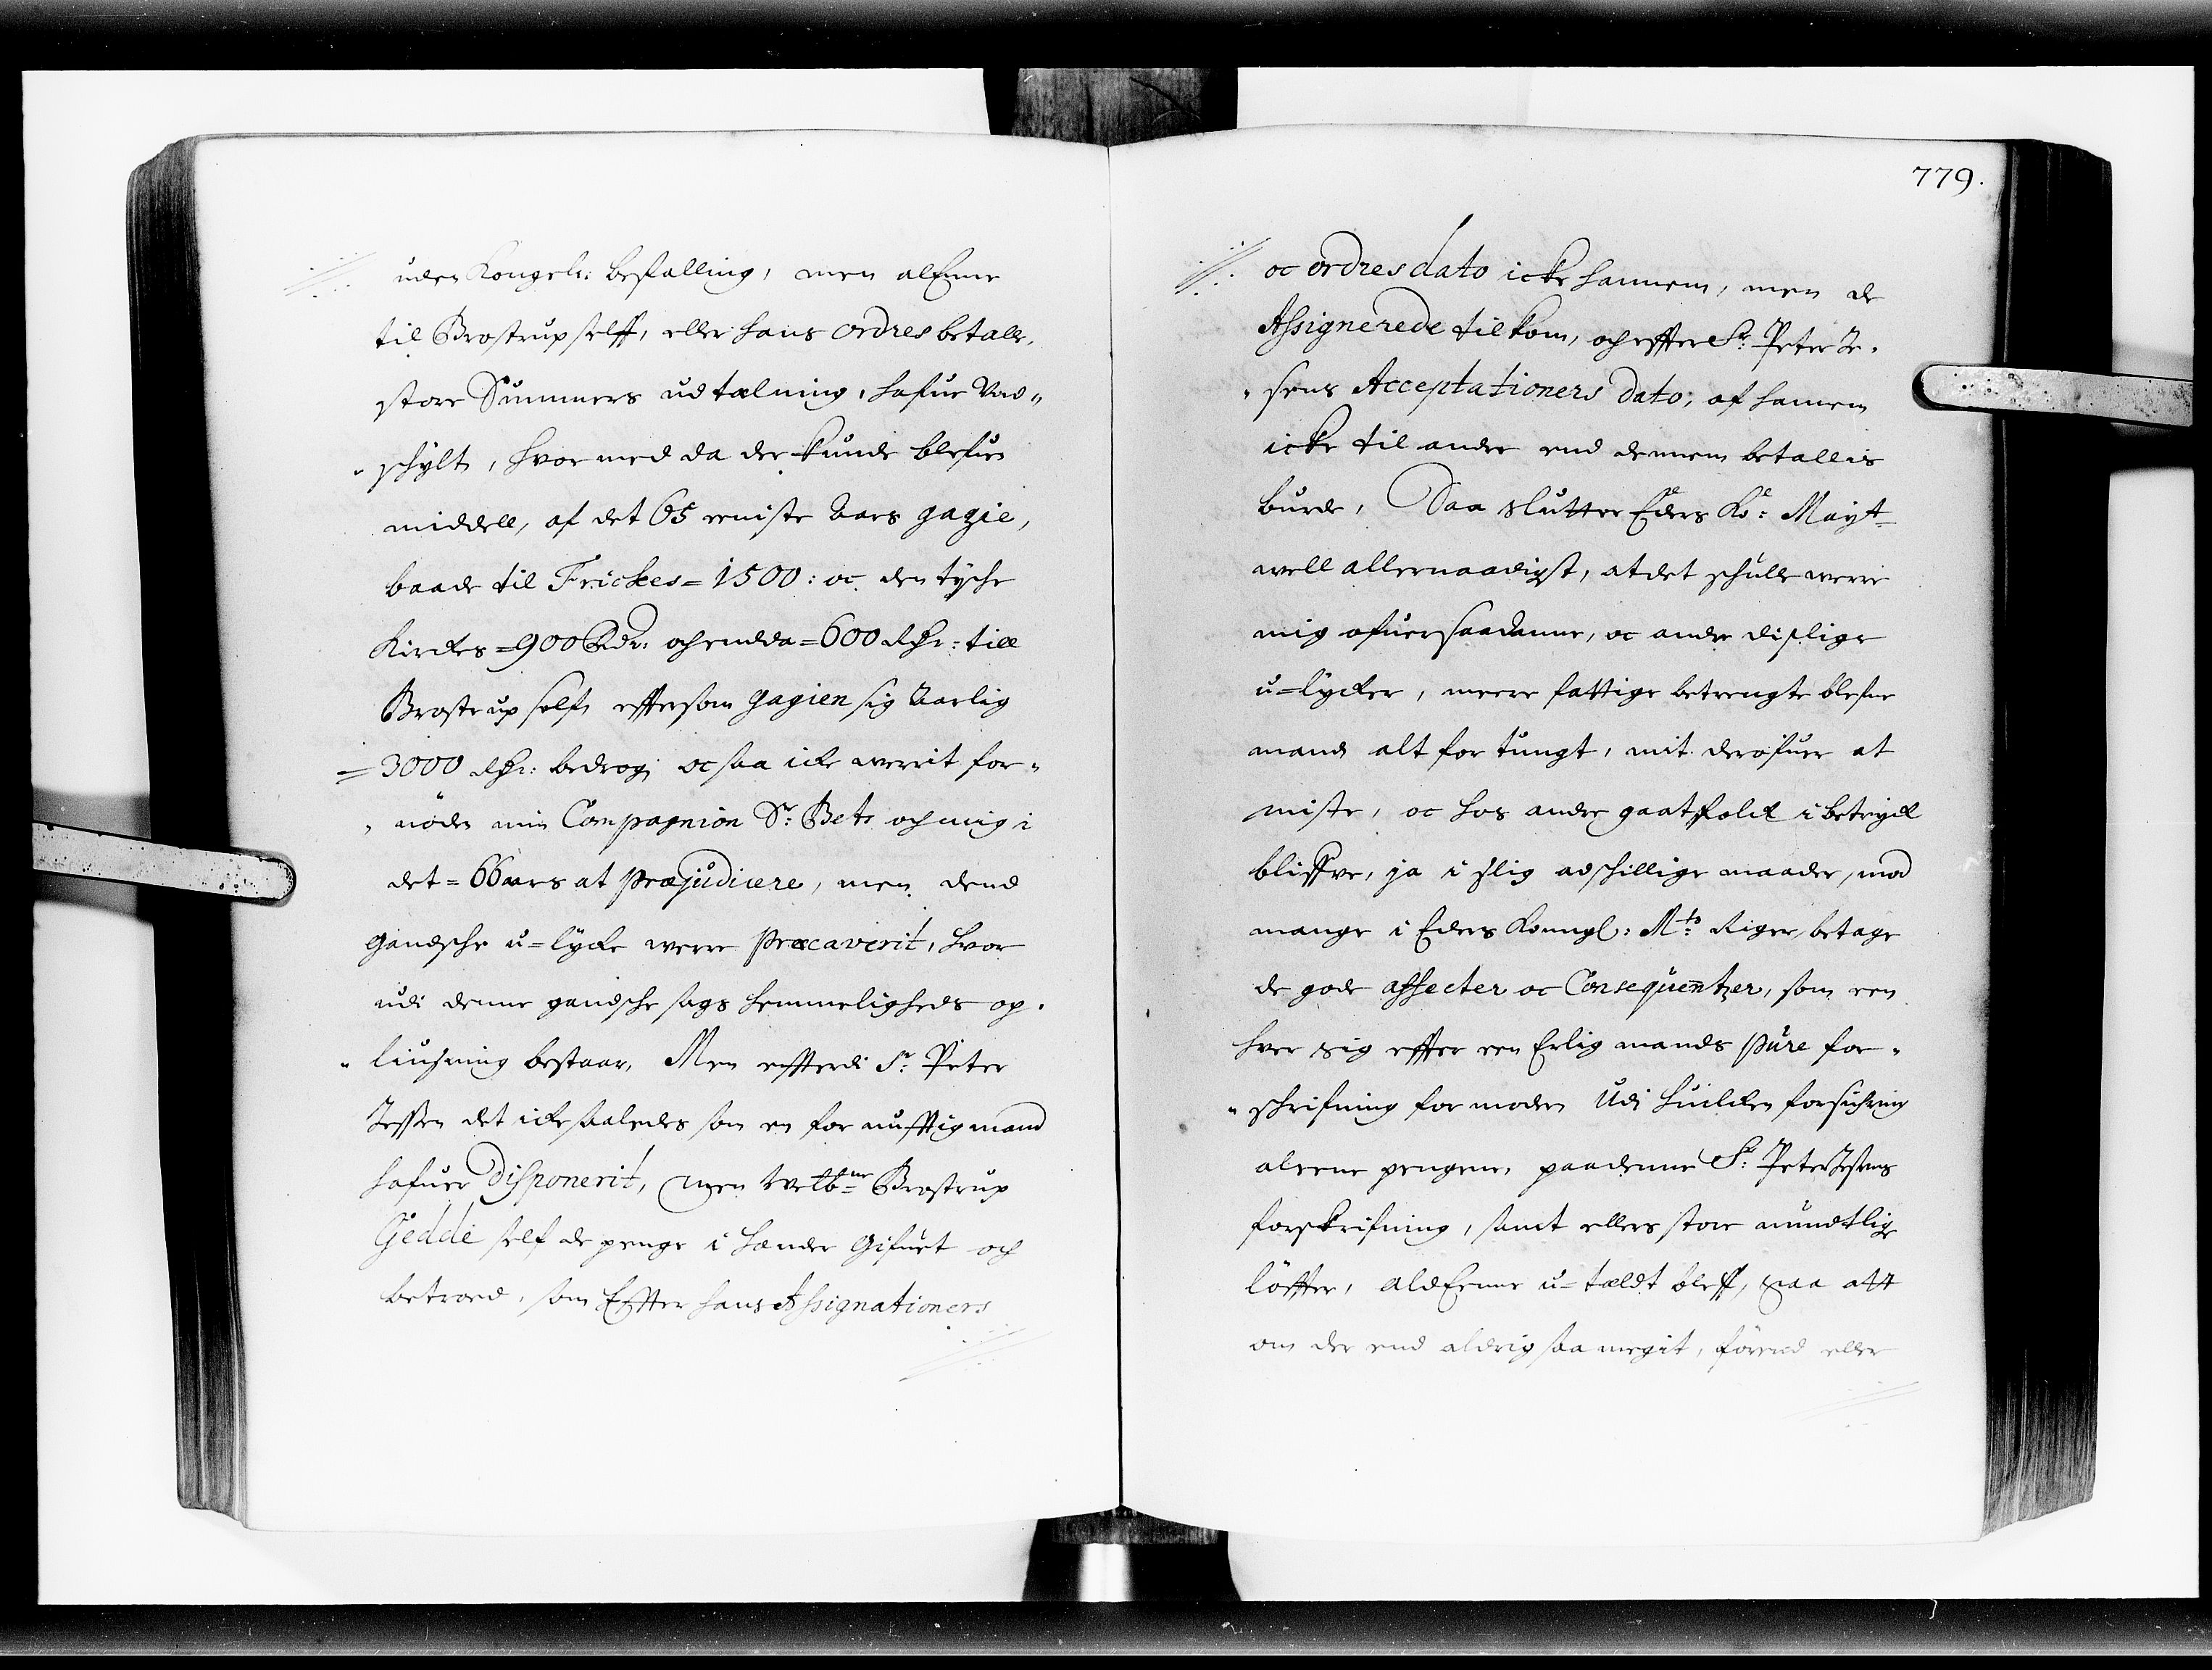 uden Kongels: befalling, men alEnne
til Brostrup selff, eller hans ordres betalle,
store Summers udtælning, hafue vnd„
„schylt, hvor med da der kunde blefuen
middell, af det 65 eniste Aars gagie,
baade til Frickes = 1500: oc den tysche
Kirckes = 900 Rdr: och endda = 600 Rdr: till
Brostrup self, effersom gagien sig Aarlig
= 3000 Rdr: bedrog, oc saa icke werrit for„
„nöden min Compagnion Sr: Bets och mig i
det = 66 aars at præjudicere, men dend
gandsche u=lycke werre præcaverit, hvor
udi denne gandsche sags hemmeligheds op„
„liusning bestaar, Men effterdi Sr: Peter
Jessen det icke saaledes som en fornufftig mand
hafuer disponerit, men Welbne: Brostrup
Gedde self de penge i hænder gifuet och
betroed, som Effter hans Assignationers
779.
oc ordres dato icke hannem, men de
Assignerede tilkom, och effter Sr: Peter Je„
„sens Acceptationers dato, af hannem
icke til andre end dennem betallis
burde, Saa slutter Eders Ko: Mayt
well allernaadigst, at det schulle werre
mig ofuer saadanne, oc andre dislige
u=lycker, meere fattige betrengte blefne
mand alt for tungt, mit derofuer at
miste, oc hos andre gaatfolck i betryck
bliffve, ja i slig adschillige maader, mod
mange i Eders Konngl: Mts: Riger, betage
de gode affecter oc Consequentzer, som een
hver sig effter een Erlig mands pure for„
„schrifning formoder Udi huilcken forsichring
aleene pengene, paa denne Sr: Peter Jesens
forskrifning, samt ellers store mundtlig
löffter, aldEenne u=taldt bleff, saa att
om der end aldrig saa megit, förend eller